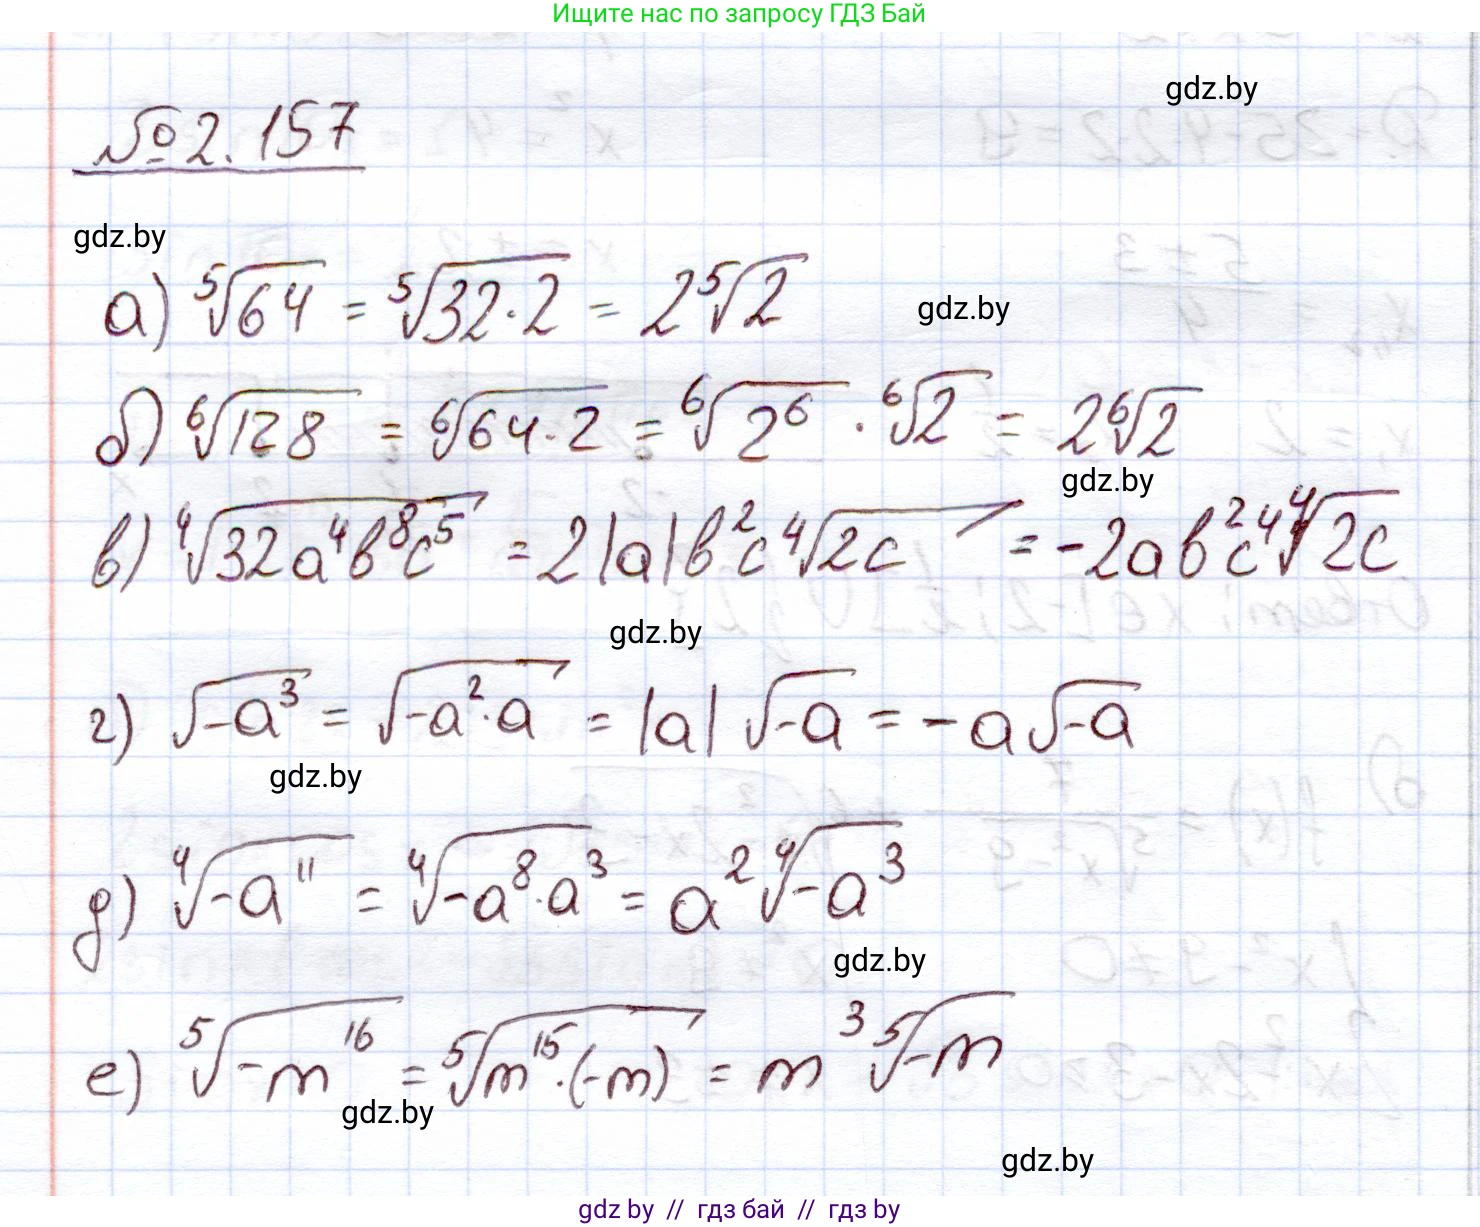 Ищите нас по запросу ГДЗ Бай
gdz.by
№2.157
gdz.by
а) ⁵√64 = ⁵√32·2 = 2⁵√2
gdz.by
б) ⁶√128 = ⁶√64·2 = ⁶√2⁶ · ⁶√2 = 2⁶√2
gdz.by
в) ⁴√32a⁴b⁸c⁵ = 2|a|b²c⁴√2c = -2ab²c⁴ ⁴√2c
gdz.by
г) √-a³ = √-a²·a = |a|√-a = -a√-a
gdz.by
д) ⁴√-a¹¹ = ⁴√-a⁸·a³ = a² ⁴√-a³
gdz.by
е) ⁵√-m¹⁶ = ⁵√m¹⁵·(-m) = m³ ⁵√-m
gdz.by
gdz.by
gdz.by // гдз бай // гдз by